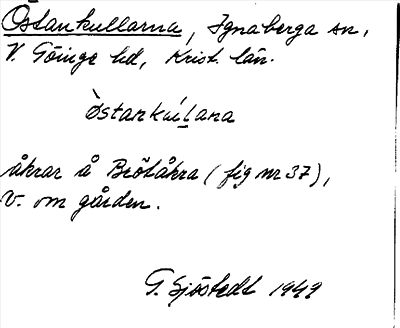 Östankullarna, Ignaberga sn,
V. Göinge hd, Krist. län.
Östankulana
åkrar å Brötåkra (fig nr 37),
V. om gården.
G. Sjöstedt 1949